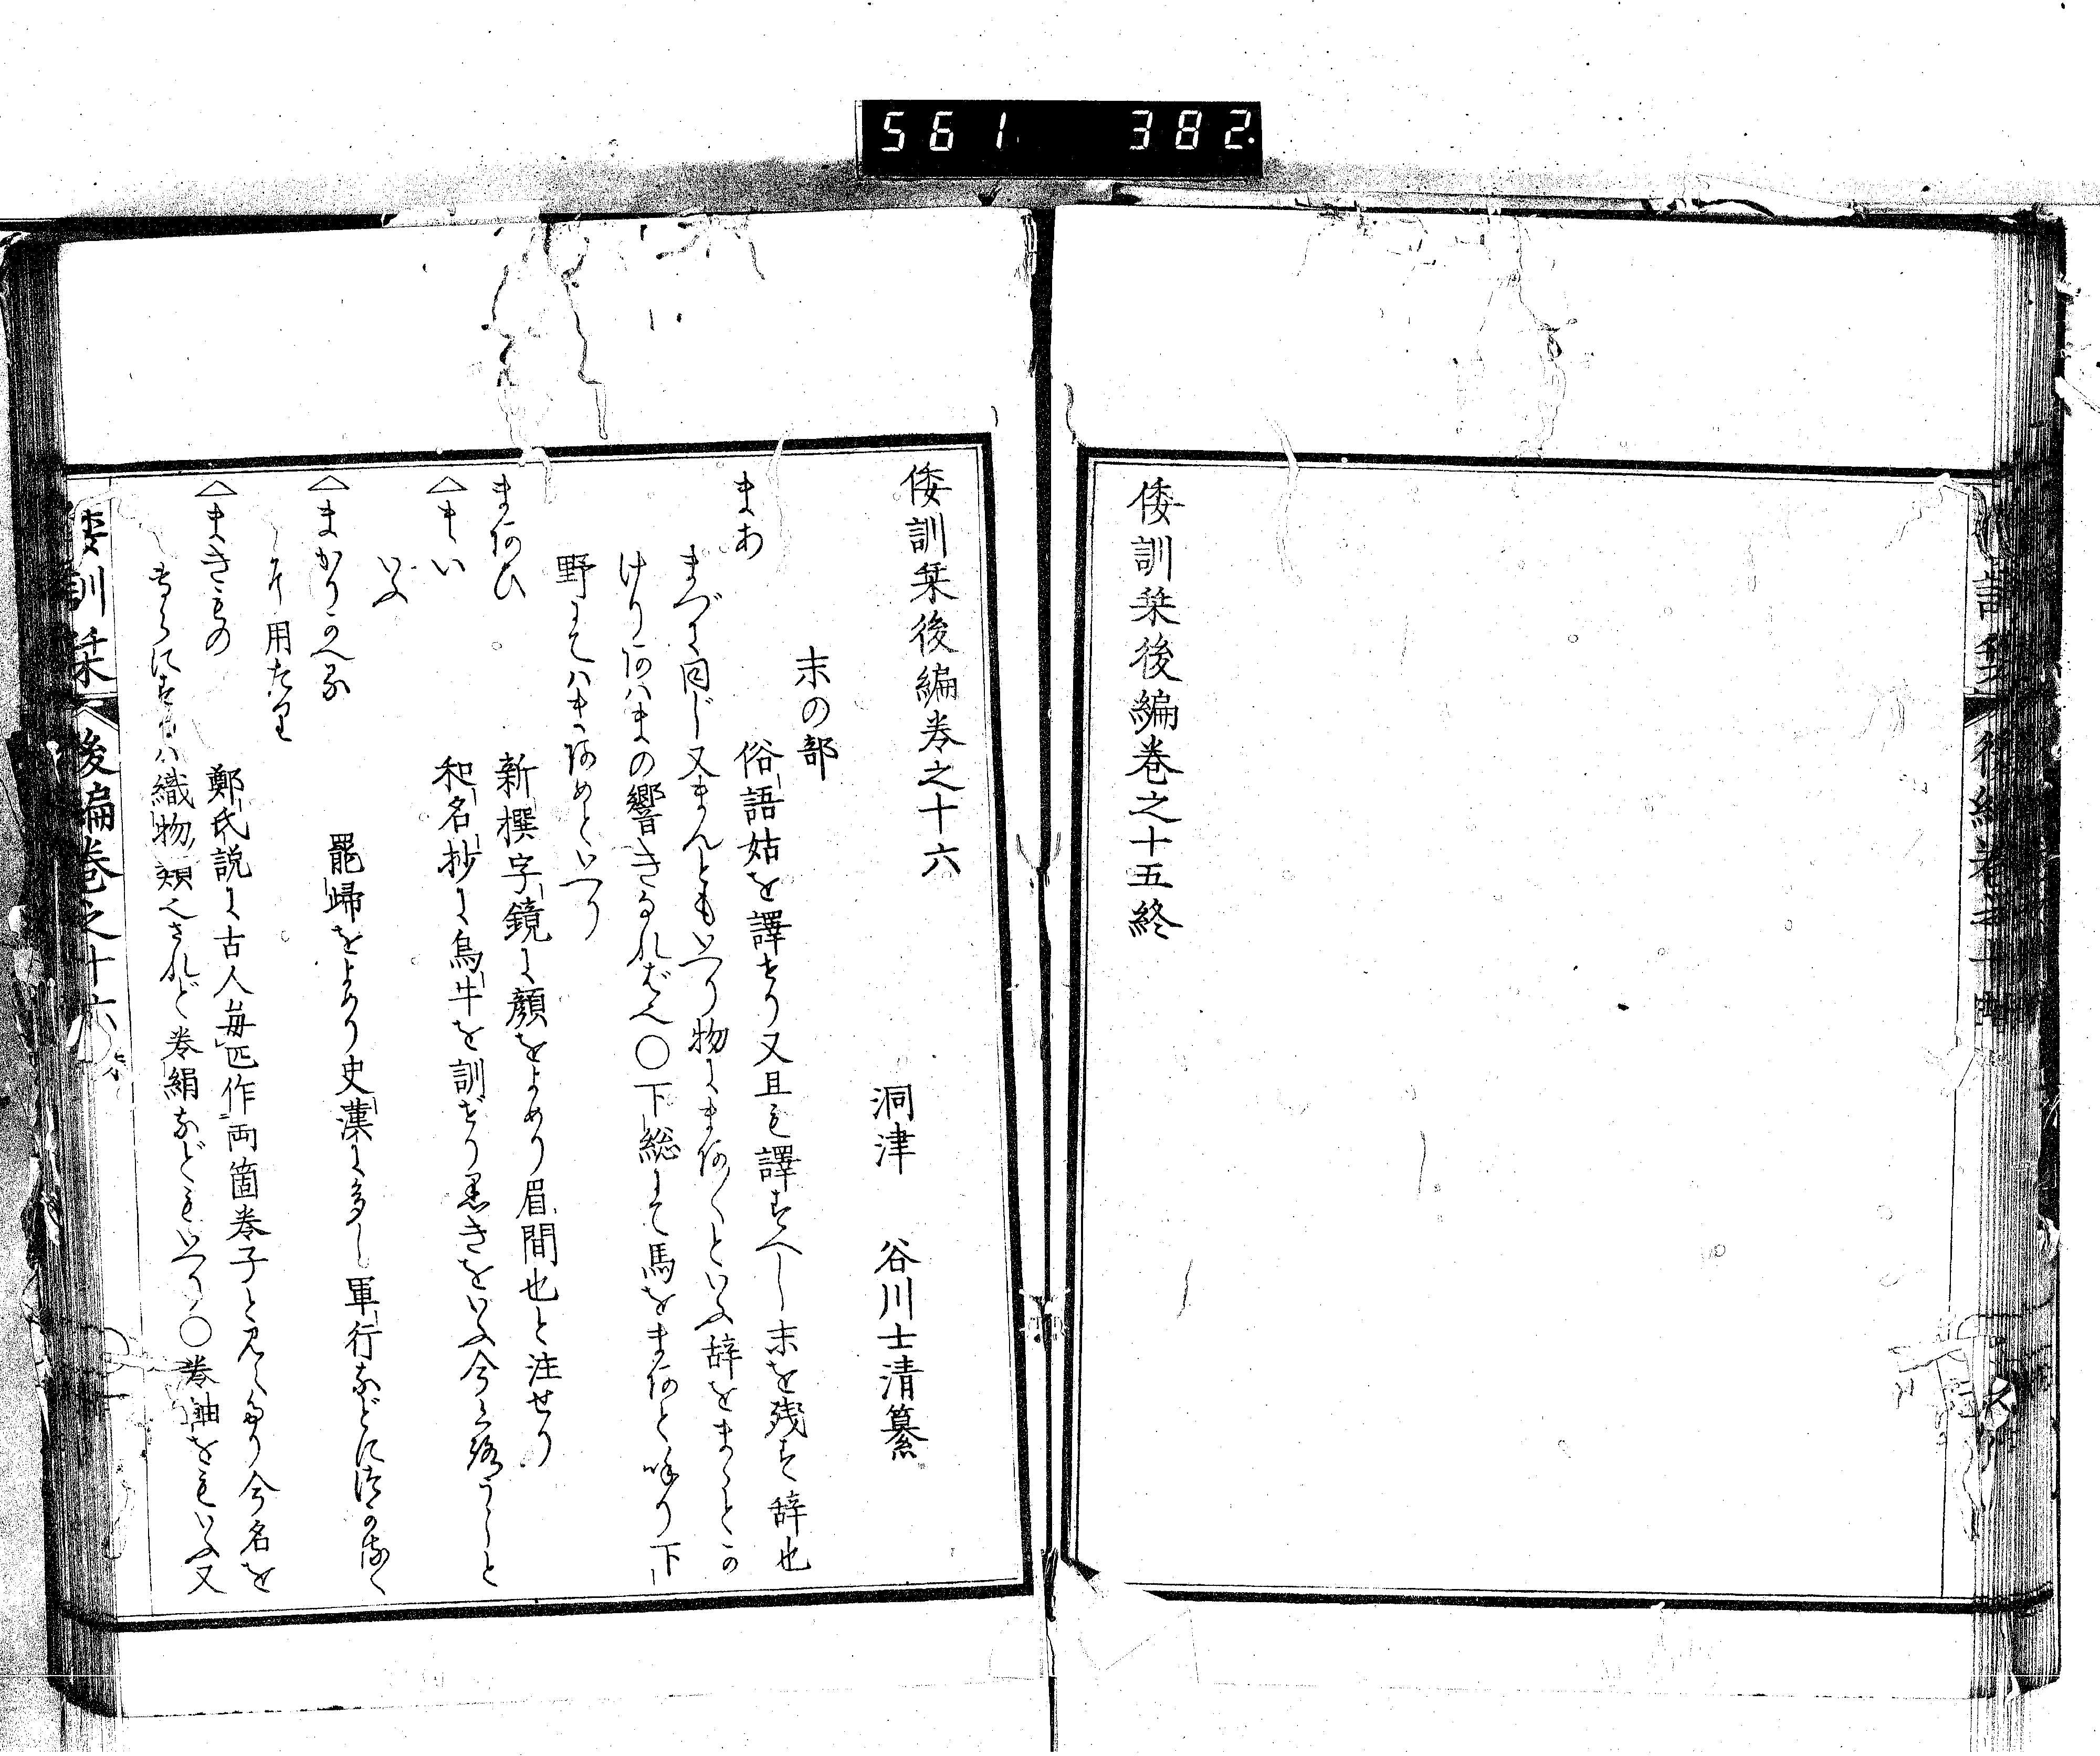 561 382
倭訓栞後編巻之十五終
倭訓栞後編巻之十六
洞津 谷川士清纂
末の部
まあ 俗語姑を譯せり又且も譯すへし末を残す辞也
まづに同じ又まんともいへり物にまあ〳〵といふ辞をまゝとか
けりあハまの響きなれば也〇下総にて馬をまあと呼り下
野にてハまあめといへり
まあひ 新撰字鏡に顔をよめり眉間也と注せり
△まい 和名抄に烏牛を訓ぜり黒きをいふ今
いふ
△まかりかへる 罷歸をよめり史漢に多し軍行などにはつかはす
用たり
△まきもの 鄭氏説に古人毎匹作両箇巻子と見えたり今名を
ハ織物類也されど巻絹などもいへり〇巻軸をもいふ又
倭訓栞 後編巻之十六